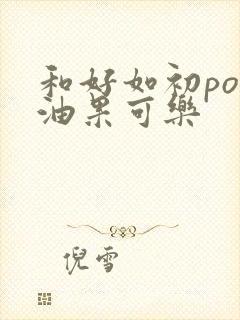 和好如初po
油果可樂
倪雪